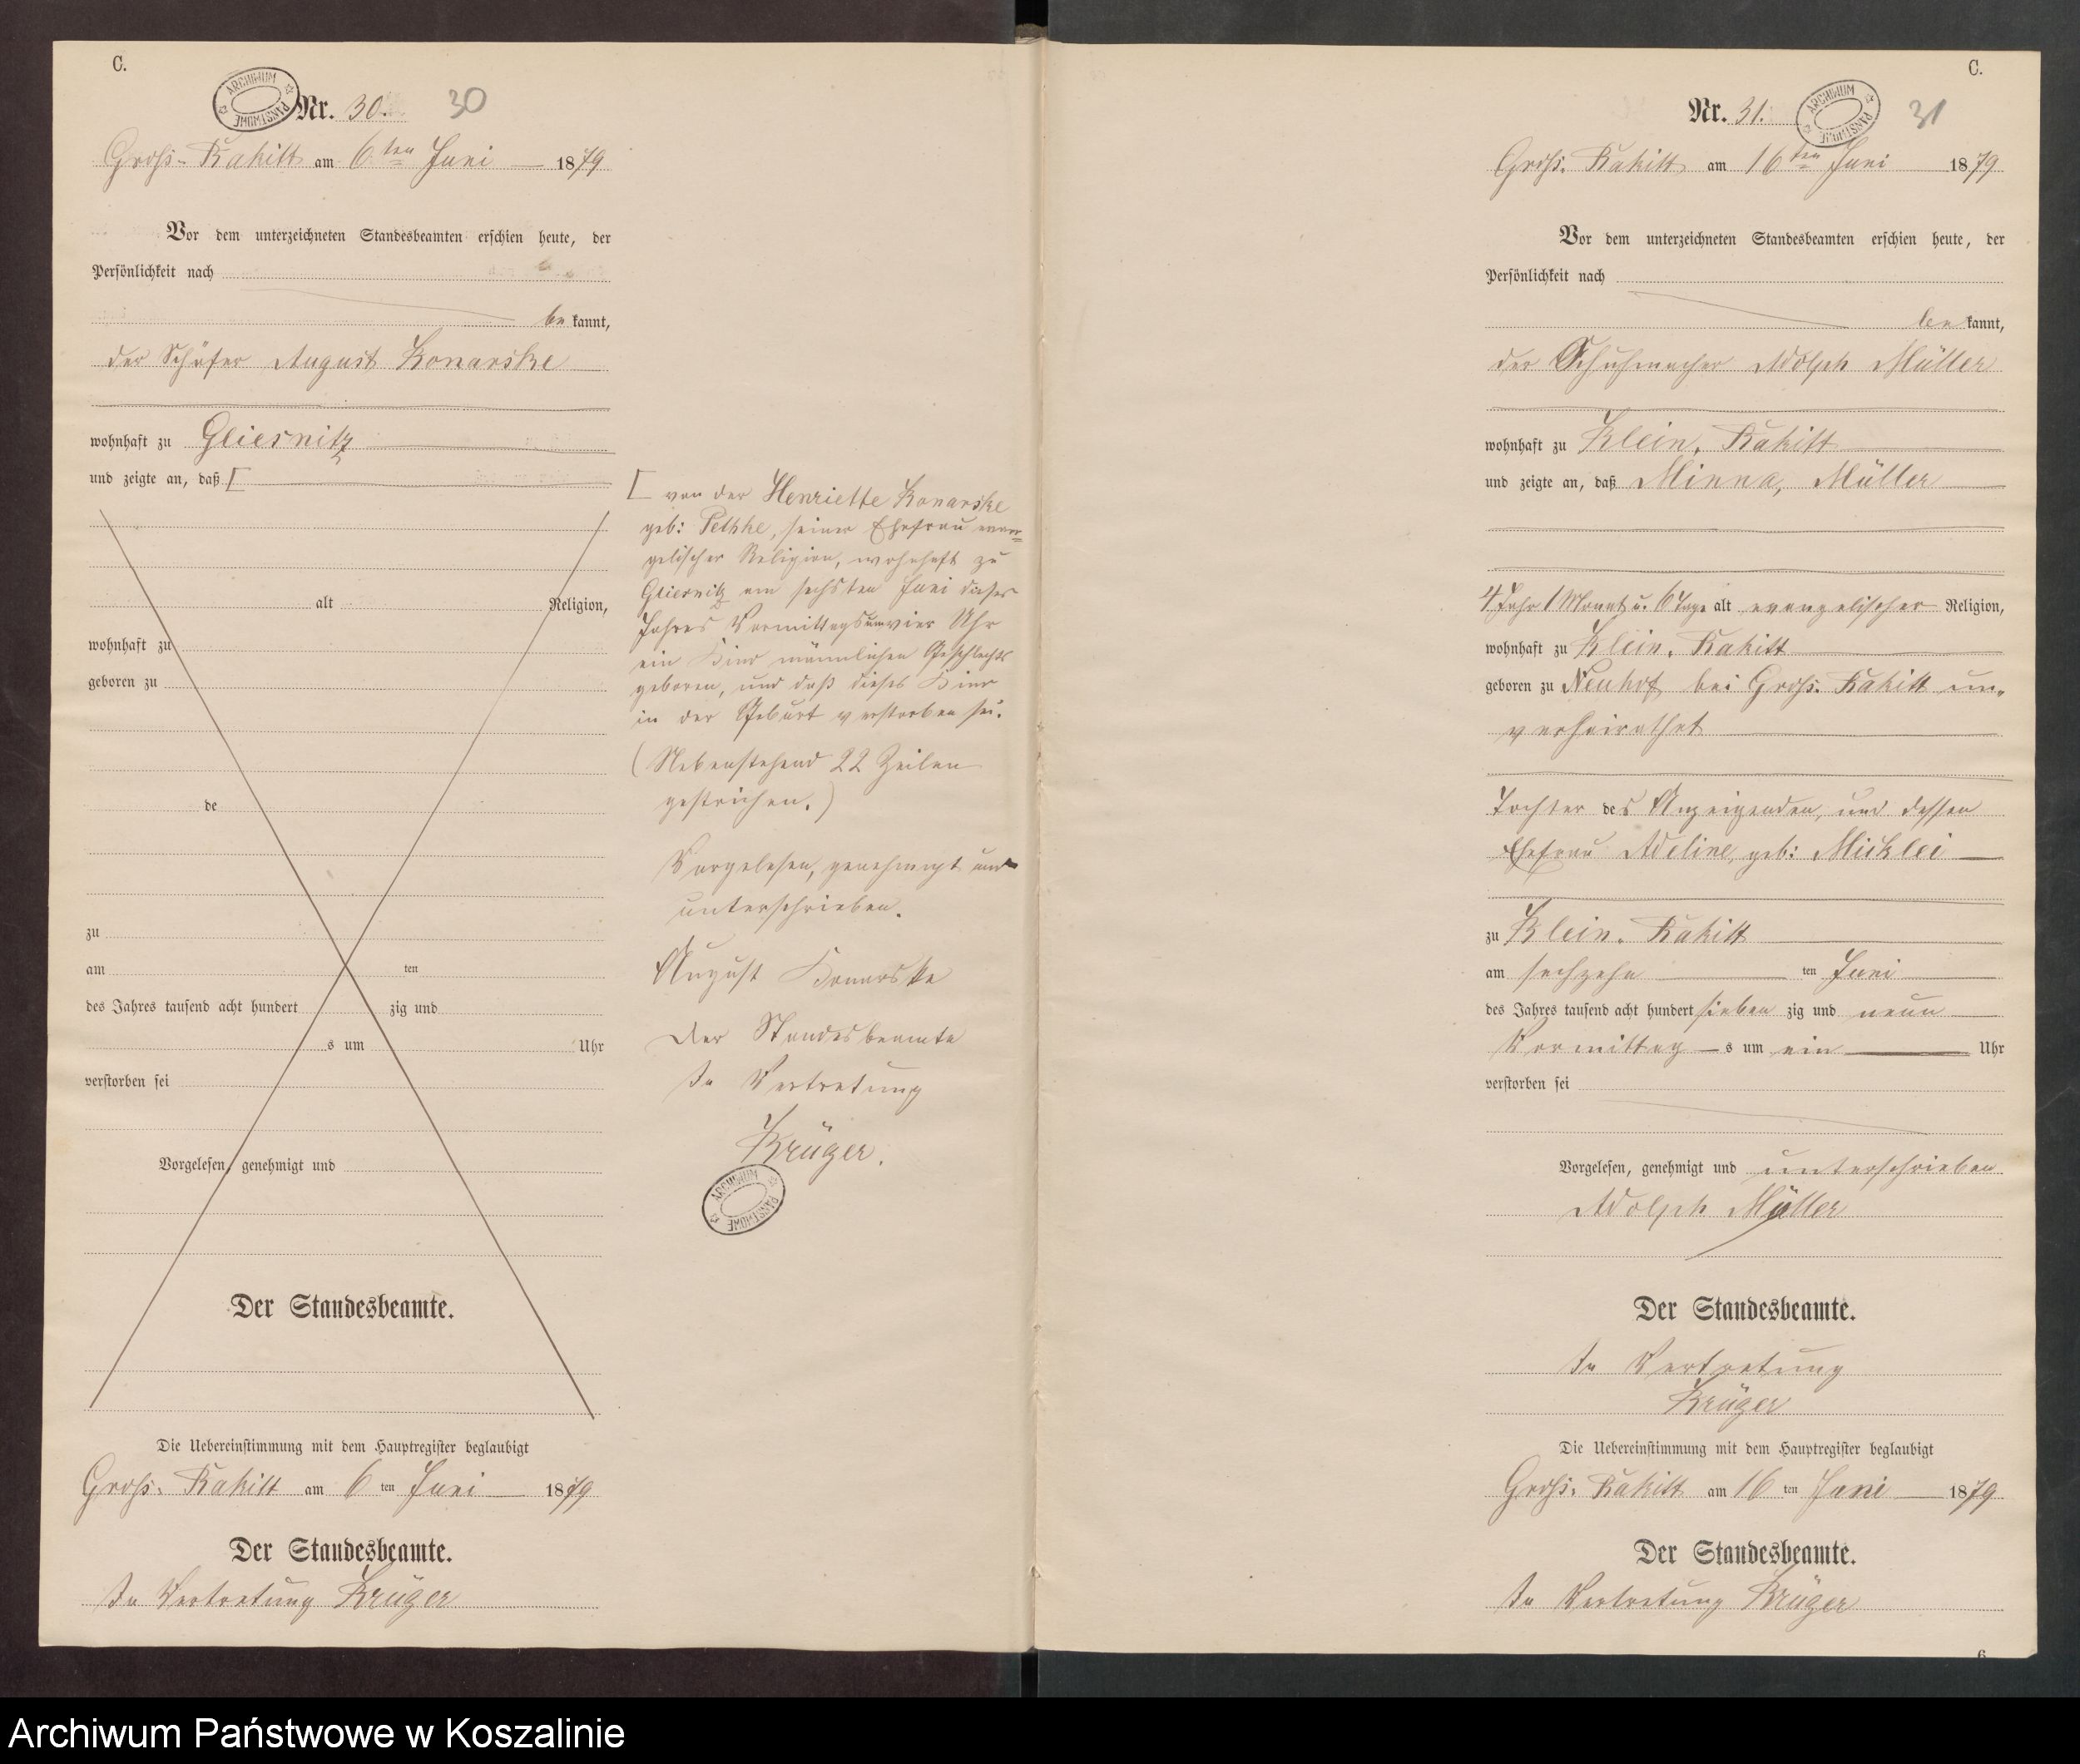 C.
ARCHIWUM PAŃSTWOWE
Nr. 30. 30
Groß-Rakitt am 6ten Juni 1879
Vor dem unterzeichneten Standesbeamten erschien heute, der
Persönlichkeit nach
be kannt,
der Schäfer August Konarske
wohnhaft zu Gliesnitz
und zeigte an, daß [
alt Religion,
wohnhaft zu
geboren zu
de
zu
am ten
des Jahres tausend acht hundert zig und
s um Uhr
verstorben sei
Vorgelesen, genehmigt und
Der Standesbeamte.
Die Uebereinstimmung mit dem Hauptregister beglaubigt
Groß-Rakitt am 6 ten Juni 1879
Der Standesbeamte.
In Vertretung Krüger
[ von der Henriette Konarske
geb: Pethke, seiner Ehefrau evan=
gelischer Religion, wohnhaft zu
Gliesnitz am sechsten Juni dieses
Jahres Vormittags um vier Uhr
ein Kind männlichen Geschlechts
geboren, und daß dieses Kind
in der Geburt verstorben sei.
(Nebenstehend 22 Zeilen
gestrichen.)
Vorgelesen, genehmigt und
unterschrieben.
August Konarske
Der Standesbeamte
In Vertretung
Krüger.
ARCHIWUM PAŃSTWOWE
C.
Nr. 31. 31
ARCHIWUM PAŃSTWOWE
Groß-Rakitt am 16ten Juni 1879
Vor dem unterzeichneten Standesbeamten erschien heute, der
Persönlichkeit nach
be kannt,
der Schuhmacher Adolph Müller
wohnhaft zu Klein-Rakitt
und zeigte an, daß Minna, Müller
4 Jahr 1 Monat u. 6 Tage alt evangelischer Religion,
wohnhaft zu Klein-Rakitt
geboren zu Neuhof bei Groß-Rakitt un-
verheirathet
Tochter des Anzeigenden, und dessen
Ehefrau Adeline, geb: Micklei
zu Klein-Rakitt
am sechzehn ten Juni
des Jahres tausend acht hundert sieben zig und neun
Vormittag s um ein Uhr
verstorben sei
Vorgelesen, genehmigt und unterschrieben
Adolph Müller
Der Standesbeamte.
In Vertretung
Krüger
Die Uebereinstimmung mit dem Hauptregister beglaubigt
Groß-Rakitt am 16 ten Juni 1879
Der Standesbeamte.
In Vertretung Krüger
6
Archiwum Państwowe w Koszalinie